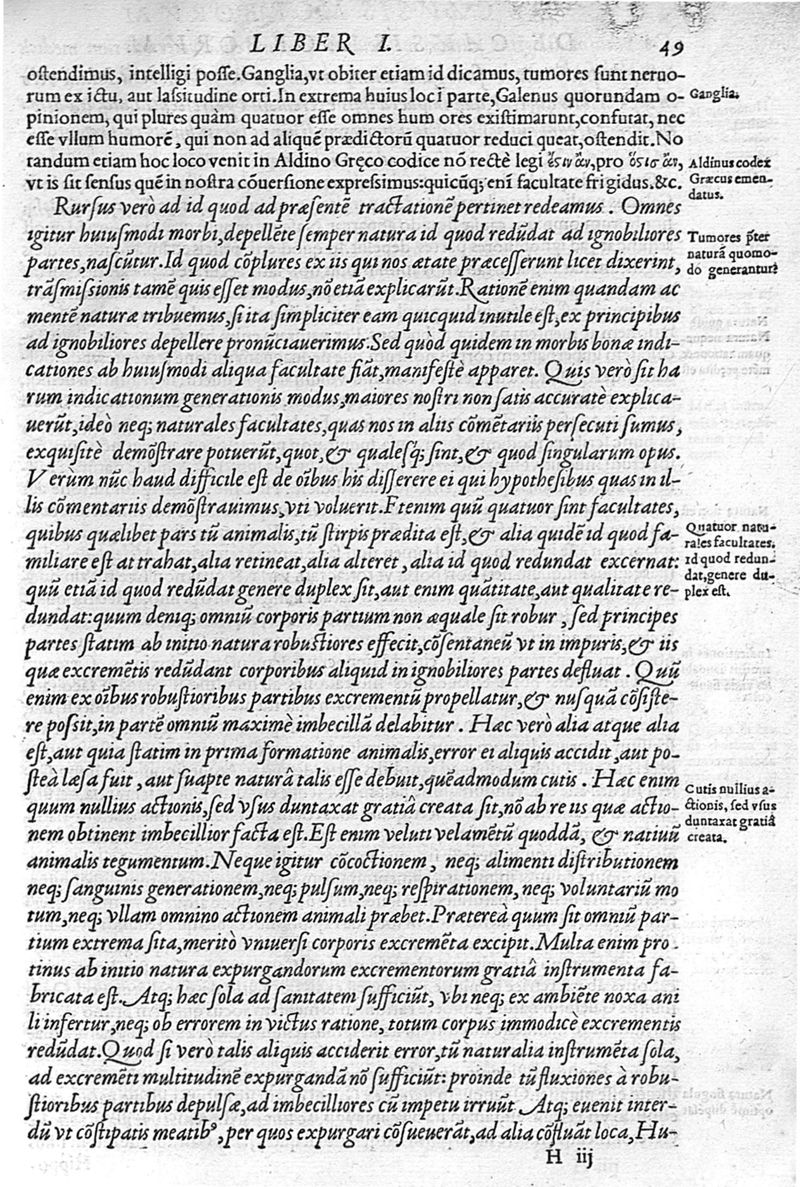 LIBER I.
49
ostendimus, intelligi posse. Ganglia, vt obiter etiam id dicamus, tumores sunt neruo-
rum ex ictu, aut lassitudine orti. In extrema huius loci parte, Galenus quorundam o-
pinionem, qui plures quàm quatuor esse omnes hum ores existimarunt, confutat, nec
esse vllum humorẽ, qui non ad aliquẽ prædictorũ quatuor reduci queat, ostendit. No
tandum etiam hoc loco venit in Aldino Gręco codice nõ rectè legi ὅστιν ἂν, pro ὅστισ ἂν,
vt is sit sensus quẽ in nostra cõuersione expressimus: quicũq; enĩ facultate frigidus. &c.
Rursus verò ad id quod ad præsentẽ tractationẽ pertinet redeamus. Omnes
igitur huiusmodi morbi, depellẽte semper natura id quod redũdat ad ignobiliores
partes, nascũtur. Id quod cõplures ex iis qui nos ætate præcesserunt licet dixerint,
trãsmissionis tamẽ quis esset modus, nõ etiã explicarũt. Rationẽ enim quandam ac
mentẽ naturæ tribuemus, si ita simpliciter eam quicquid inutile est, ex principibus
ad ignobiliores depellere pronũciauerimus. Sed quòd quidem in morbis bonæ indi-
cationes ab huiusmodi aliqua facultate fiãt, manifestè apparet. Quis verò sit ha
rum indicationum generationis modus, maiores nostri non satis accuratè explica-
uerũt, ideò neq; naturales facultates, quas nos in aliis cõmẽtariis persecuti sumus,
exquisitè demõstrare potuerũt, quot, & qualesq; sint, & quod singularum opus.
Verùm nũc haud difficile est de oĩbus his disserere ei qui hypothesibus quas in il-
lis cõmentariis demõstrauimus, vti voluerit. Etenim quũ quatuor sint facultates,
quibus quælibet pars tũ animalis, tũ stirpis prædita est, & alia quidẽ id quod fa-
miliare est at trahat, alia retineat, alia alteret, alia id quod redundat excernat:
quũ etiã id quod redũdat genere duplex sit, aut enim quãtitate, aut qualitate re-
dundat: quum deniq; omniũ corporis partium non æquale sit robur, sed principes
partes statim ab initio natura robustiores effecit, cõsentaneũ vt in impuris, & iis
quæ excremẽtis redũdant corporibus aliquid in ignobiliores partes defluat. Quũ
enim ex oĩbus robustioribus partibus excrementũ propellatur, & nusquã cõsiste-
re possit, in partẽ omniũ maximè imbecillã delabitur. Hæc verò alia atque alia
est, aut quia statim in prima formatione animalis, error ei aliquis accidit, aut po-
steà læsa fuit, aut suapte naturâ talis esse debuit, quẽadmodum cutis. Hæc enim
quum nullius actionis, sed vsus duntaxat gratiâ creata sit, nõ ab re iis quæ actio-
nem obtinent imbecillior facta est. Est enim veluti velamẽtũ quoddã, & natiuũ
animalis tegumentum. Neque igitur cõcoctionem, neq; alimenti distributionem
neq; sanguinis generationem, neq; pulsum, neq; respirationem, neq; voluntariũ mo
tum, neq; vllam omnino actionem animali præbet. Prætereà quum sit omniũ par-
tium extrema sita, meritò vniuersi corporis excremẽta excipit. Multa enim pro
tinus ab initio natura expurgandorum excrementorum gratiâ instrumenta fa-
bricata est. Atq; hæc sola ad sanitatem sufficiũt, vbi neq; ex ambiẽte noxa ani
li infertur, neq; ob errorem in victus ratione, totum corpus immodicè excrementis
redũdat. Quod si verò talis aliquis acciderit error, tũ naturalia instrumẽta sola,
ad excremẽti multitudinẽ expurgandã nõ sufficiũt: proinde tũ fluxiones à robu-
stioribus partibus depulsæ, ad imbecilliores cũ impetu irruũt. Atq; euenit inter-
dũ vt cõstipatis meatibꝰ, per quos expurgari cõsueuerãt, ad alia cõfluãt loca, Hu-
H iij
Ganglia.
Aldinus codex
Græcus emen-
datus.
Tumores p̃ter
naturã quomo-
dò generantur?
Quatuor natu-
rales facultates.
Id quod redun-
dat, genere du-
plex est.
Cutis nullius a-
ctionis, sed vsus
duntaxat gratiâ
creata.